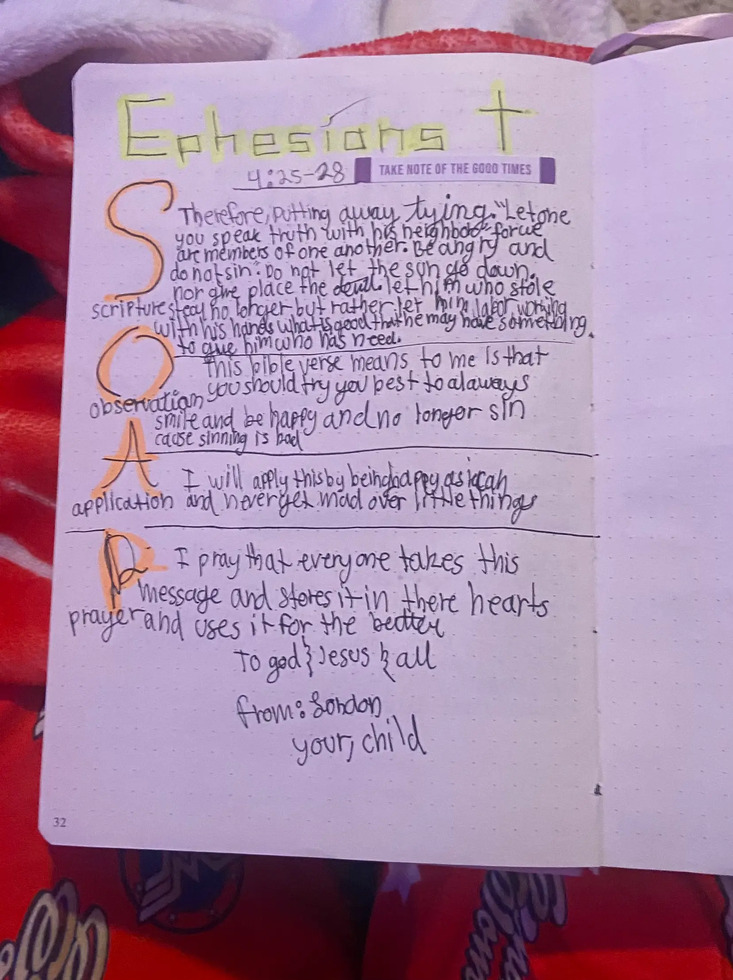 Ephesians
4:25-28
TAKE NOTE OF THE GOOD TIMES
S Therefore, putting away lying. "Let one
you speak truth with his neighboor" for we
are members of one another. Be angry and
do not sin": Do not let the sun go down.
nor give place the devil let him who stole
scripture steal no longer but rather let him labor, working
with his hands what is good that he may have something
to give him who has need.
O This bible verse means to me is that
observation you should try you best to alaways
smile and be happy and no longer sin
cause sinning is bad
A I will apply this by being happy as i can
application and never get mad over little things
P I pray that everyone takes this
message and stores it in there hearts
prayer and uses it for the better
To god } Jesus } all
from:
your, child
32